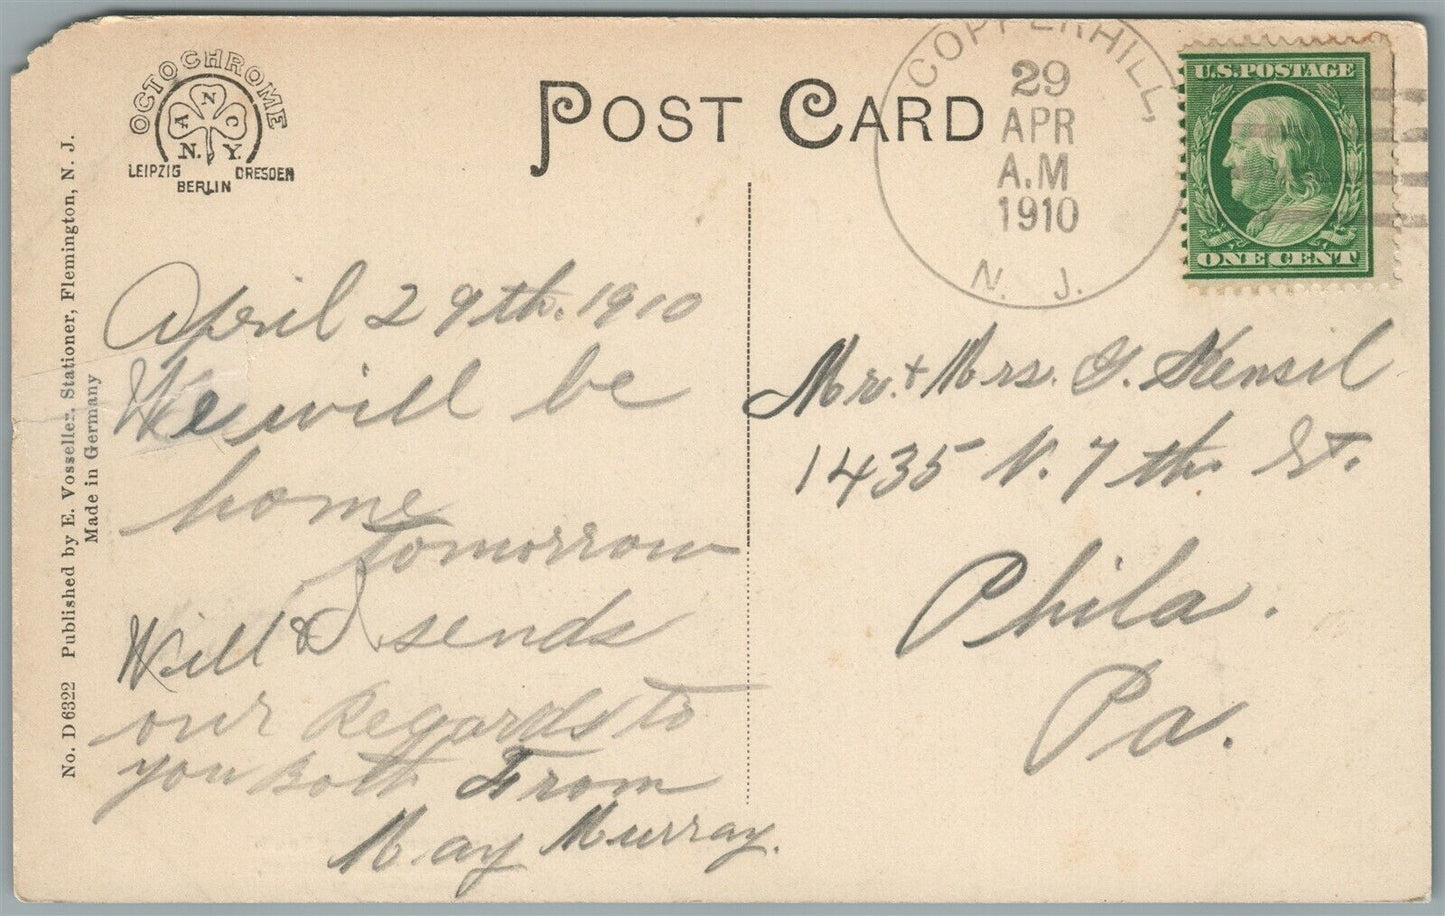 OCTOCHROME
A N C
N. Y.
LEIPZIG DRESDEN
BERLIN
POST CARD
COPPERHILL
29
APR
A.M
1910
N. J.
U.S. POSTAGE
ONE CENT
No. D 6322 Published by E. Vosseller, Stationer, Flemington, N. J.
Made in Germany
April 29th. 1910
We will be
home
tomorrow
Will & I sends
our Regards to
you Both From
May Murray.
Mr. + Mrs. G. Kensil
1435 N. 7th. St.
Phila.
Pa.